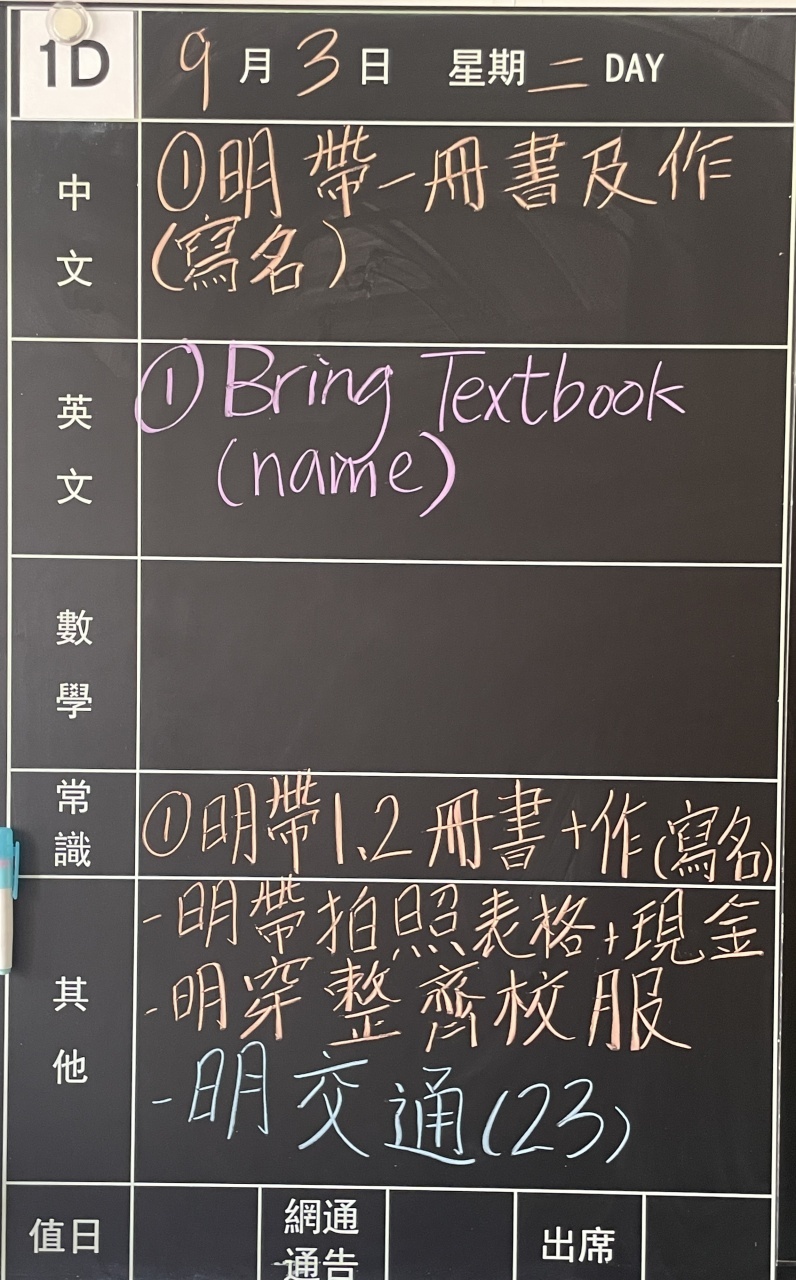 1D
9月3日 星期二 DAY
中文
①明帶一冊書及作
(寫名)
英文
① Bring Textbook
(name)
數學
常識
①明帶1、2冊書+作(寫名)
其他
-明帶拍照表格+現金
-明穿整齊校服
-明交通(23)
值日
網通
通告
出席